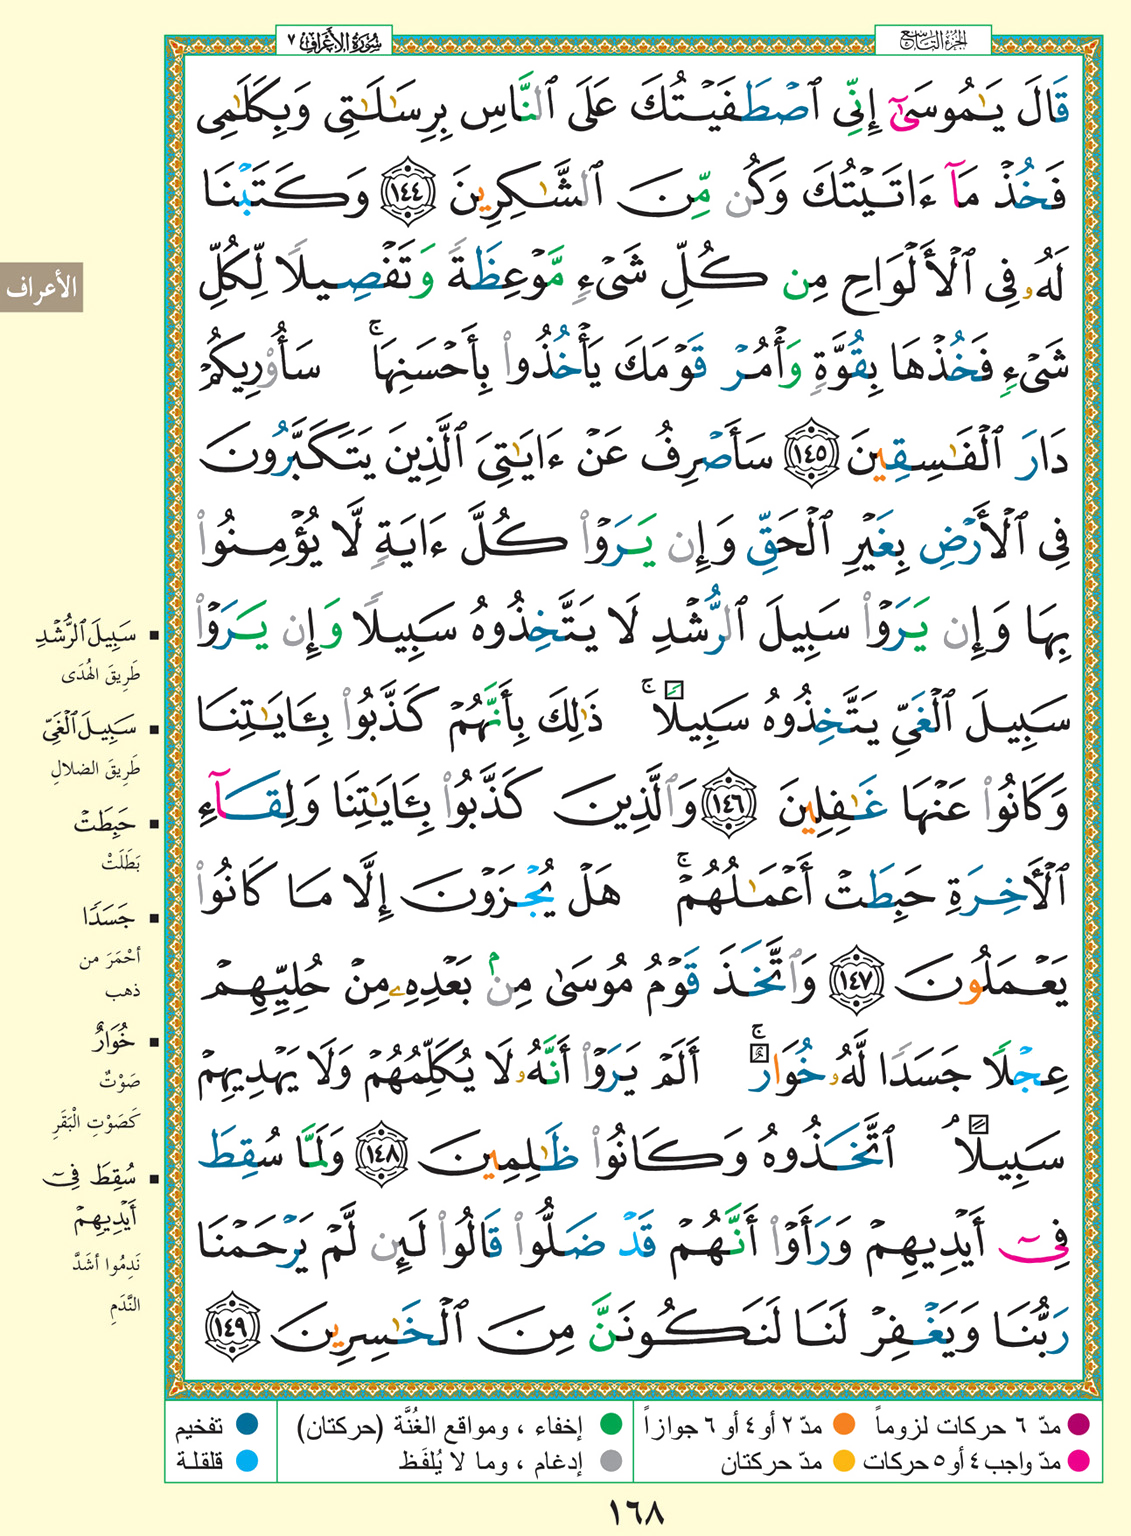 الجزء التاسع
سورة الأعراف ٧
قَالَ يَٰمُوسَىٰٓ إِنِّى ٱصْطَفَيْتُكَ عَلَى ٱلنَّاسِ بِرِسَٰلَٰتِى وَبِكَلَٰمِى
فَخُذْ مَآ ءَاتَيْتُكَ وَكُن مِّنَ ٱلشَّٰكِرِينَ ١٤٤ وَكَتَبْنَا
لَهُۥ فِى ٱلْأَلْوَاحِ مِن كُلِّ شَىْءٍ مَّوْعِظَةً وَتَفْصِيلًا لِّكُلِّ
شَىْءٍ فَخُذْهَا بِقُوَّةٍ وَأْمُرْ قَوْمَكَ يَأْخُذُوا۟ بِأَحْسَنِهَا ۚ سَأُو۟رِيكُمْ
دَارَ ٱلْفَٰسِقِينَ ١٤٥ سَأَصْرِفُ عَنْ ءَايَٰتِىَ ٱلَّذِينَ يَتَكَبَّرُونَ
فِى ٱلْأَرْضِ بِغَيْرِ ٱلْحَقِّ وَإِن يَرَوْا۟ كُلَّ ءَايَةٍ لَّا يُؤْمِنُوا۟
بِهَا وَإِن يَرَوْا۟ سَبِيلَ ٱلرُّشْدِ لَا يَتَّخِذُوهُ سَبِيلًا وَإِن يَرَوْا۟
سَبِيلَ ٱلْغَىِّ يَتَّخِذُوهُ سَبِيلًا ۚ ذَٰلِكَ بِأَنَّهُمْ كَذَّبُوا۟ بِـَٔايَٰتِنَا
وَكَانُوا۟ عَنْهَا غَٰفِلِينَ ١٤٦ وَٱلَّذِينَ كَذَّبُوا۟ بِـَٔايَٰتِنَا وَلِقَآءِ
ٱلْأَخِرَةِ حَبِطَتْ أَعْمَٰلُهُمْ ۚ هَلْ يُجْزَوْنَ إِلَّا مَا كَانُوا۟
يَعْمَلُونَ ١٤٧ وَٱتَّخَذَ قَوْمُ مُوسَىٰ مِنۢ بَعْدِهِۦ مِنْ حُلِيِّهِمْ
عِجْلًا جَسَدًا لَّهُۥ خُوَارٌ ۚ أَلَمْ يَرَوْا۟ أَنَّهُۥ لَا يُكَلِّمُهُمْ وَلَا يَهْدِيهِمْ
سَبِيلًا ۘ ٱتَّخَذُوهُ وَكَانُوا۟ ظَٰلِمِينَ ١٤٨ وَلَمَّا سُقِطَ
فِىٓ أَيْدِيهِمْ وَرَأَوْا۟ أَنَّهُمْ قَدْ ضَلُّوا۟ قَالُوا۟ لَئِن لَّمْ يَرْحَمْنَا
رَبُّنَا وَيَغْفِرْ لَنَا لَنَكُونَنَّ مِنَ ٱلْخَٰسِرِينَ ١٤٩
الأعراف
سَبِيلَ ٱلرُّشْدِ
طَرِيقَ الهُدَى
سَبِيلَ ٱلْغَىِّ
طَرِيقَ الضلالِ
حَبِطَتْ
بَطَلَتْ
جَسَدًا
أحْمَرَ من
ذهب
خُوَارٌ
صَوْتٌ
كَصَوْتِ الْبَقَرِ
سُقِطَ فِىٓ
أَيْدِيهِمْ
نَدِمُوا أشَدَّ
النَّدَمِ
مدّ ٦ حركات لزوماً
مدّ ٢ أو ٤ أو ٦ جوازاً
إخفاء ، ومواقع الغُنَّة (حركتان)
تفخيم
مدّ واجب ٤ أو ٥ حركات
مدّ حركتان
إدغام ، وما لا يُلفَظ
قلقلة
١٦٨